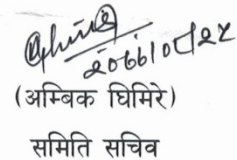 २०६६।०८।२५
(अम्बिक घिमिरे)
समिति सचिव